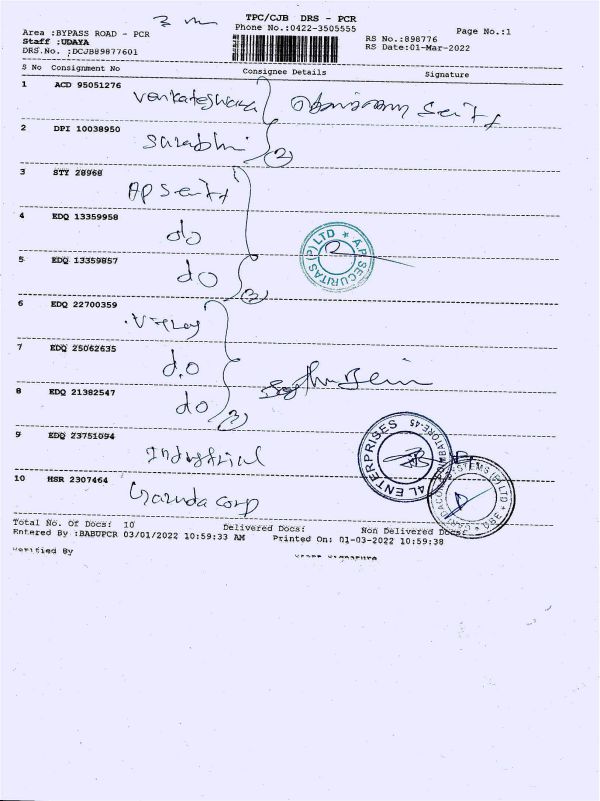 TPC/CJB DRS - PCR
Area :BYPASS ROAD - PCR
Phone No.:0422-3505555
Page No.:1
Staff :UDAYA
RS No.:898776
DRS.No. ;DCJB89877601
RS Date:01-Mar-2022
S No Consignment No Consignee Details Signature
1 ACD 95051276 Venkateshwara
2 DPI 10038950 Surabhi (2)
3 STY 28968 AP Seritt
4 EDQ 13359958 do
A.P. SECURITAS (P) LTD
5 EDQ 13359857 do (3)
6 EDQ 22700359
7 EDQ 25062635 do
8 EDQ 21382547 do (3)
9 EDQ 23751094 Industrial
4L ENTERPRISES
10 HSR 2307464 Garuda Corp
Total No. Of Docs: 10 Delivered Docs: Non Delivered Docs:
Entered By :BABUPCR 03/01/2022 10:59:33 AM Printed On: 01-03-2022 10:59:38
Verified By